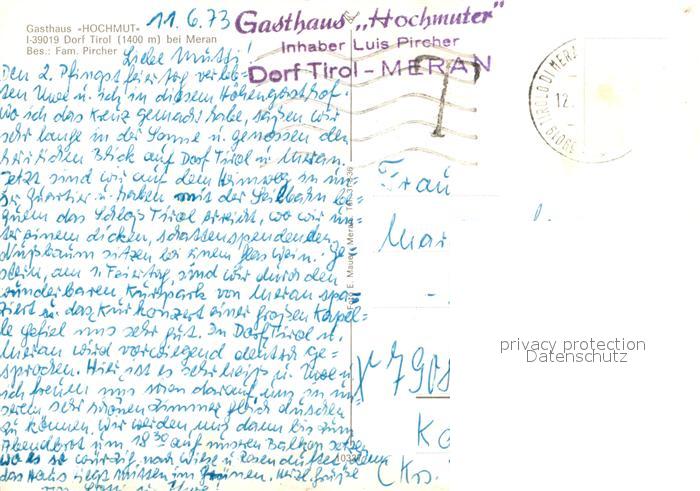 11.6.73
Gasthaus «HOCHMUT»
I-39019 Dorf Tirol (1400 m) bei Meran
Bes.: Fam. Pircher
Gasthaus „Hochmuter"
Inhaber Luis Pircher
Dorf Tirol - MERAN
39019 TIROLO DI MERA
12.
T
Liebe Mutti!
Den 2. Pfingstfeiertag verleb-
ten Uwe u. ich in diesem Höhengasthof.
Wo ich das Kreuz gemacht habe, saßen wir
sehr lange in der Sonne u. genossen den
herrlichen Blick auf Dorf Tirol u. Meran.
Jetzt sind wir auf dem Heimweg in un-
ser Quartier u. haben mit der Seilbahn be-
quem das Schloß Tirol erreicht, wo wir un-
ter einem dicken, schattenspendenden
Nußbaum sitzen bei einem Glas Wein. Ge-
stern, am 1. Feiertag, sind wir durch den
wunderbaren Kurpark von Meran spa-
ziert u. das Kurkonzert einer großen Kapel-
le gefiel uns sehr gut. In Dorf Tirol u.
Meran wird vorwiegend deutsch ge-
sprochen. Hier ist es sehr heiß u. Uwe u.
ich freuen uns schon darauf, uns in un-
serem sehr schönen Zimmer gleich duschen
zu können. Wir werden uns dann bis zum
Abendbrot um 18 30 auf unseren Balkon setzen
wo es so würzig nach Wiese u. Rosen duftet, denn
das Haus liegt mitten im Grünen. Herzl. Grüße
Foto E.
Meran
Frau
Mar
790
K
(Krs.
privacy protection
Datenschutz